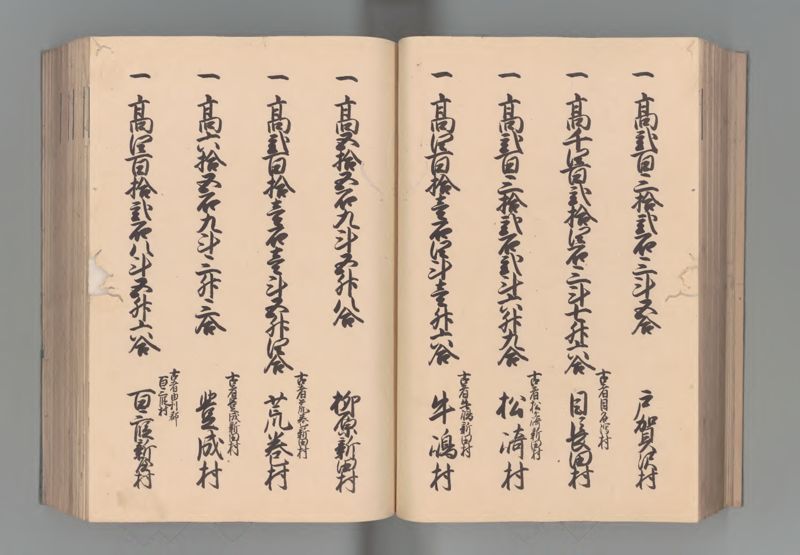 一 高弐百三拾弐石三斗五合
戸賀沢村
一 高千四百弐拾四石三斗七升六合
古者目名潟村
目長田村
一 高弐百三拾弐石弐斗六升九合
古者松崎新田村
松崎村
一 高四百拾壱石四斗壱升六合
古者牛嶋新田村
牛嶋村
一 高五拾五石九斗五升八合
柳原新田村
一 高弐百拾壱石壱斗五升四合
古者荒巻新田村
荒巻村
一 高六拾五石九斗三升三合
古者豊成新田村
豊成村
一 高四百拾弐石八斗五升六合
古者由利郡
百三段村
百三段新屋村